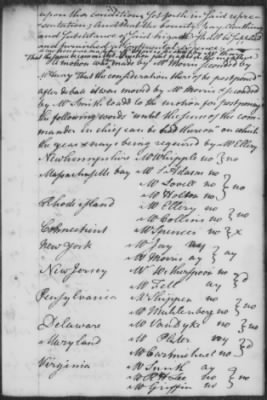 upon that condition set forth in said repre
sentation, & that said the bounty, pay, cloathing
and subsistance of said brigade shall be settled
and furnished
That the said committee
A motion was made by Mr Morris seconded by
Mr Duany That the consideration thereof be postponed
after debate it was moved by Mr Morris seconded
by Mr Smith to add to the motion for postponing
the following words "until the sense of the com-
mander in chief can be had thereon" on which
the yeas & nays being required by Mr Ellery
Newhampshire Mr Whipple no } no
Massachusetts bay Mr S Adams no
Mr Lovell no } no
Mr Holton no
Rhode island Mr Ellery no
Mr Collins no } no
Connecticut Mr Spencer no } x
New York Mr Jay ay
Mr Morris ay } ay
New Jersey Mr Witherspoon no
Mr Fell ay } d
Pensylvania Mr Shippen no
Mr Muhlenberg no } no
Delaware Mr Vandyke no } no
Maryland Mr Plater no
Mr Carmichael no
Virginia Mr Smith ay
Mr R H Lee no } no
Mr Griffin no